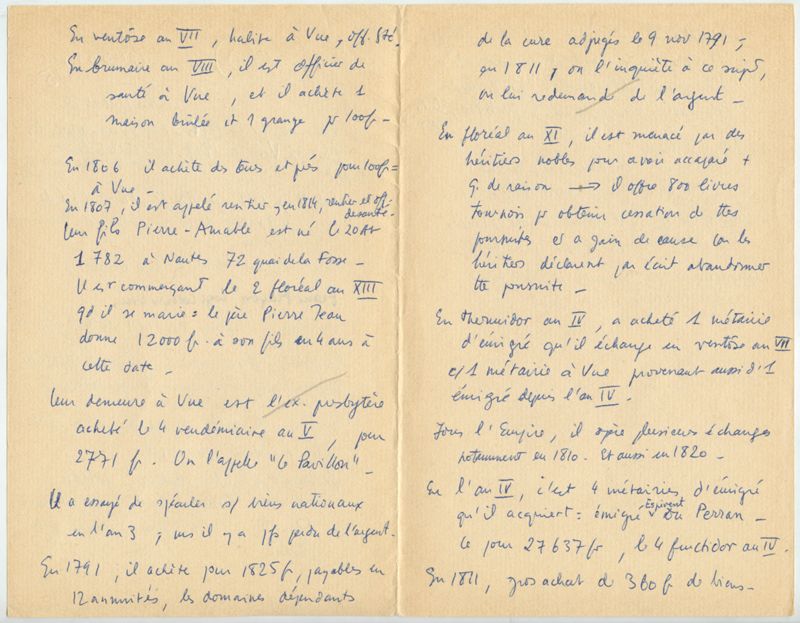 En ventôse an VII, habite à Vue, off. sté.
En brumaire an VIII, il est officier de
santé à Vue, et il achète 1
maison brûlée et 1 grange pr 100 fr -
En 1806 il achète des terres et prés pour 100 fr =
à Vue -
En 1807, il est appelé rentier, en 1814, rentier et off.
de santé -
Leur fils Pierre-Amable est né le 20 At
1782 à Nantes 72 quai de la Fosse -
Il est commerçant le 2 floréal an XIII
qd il se marie = le père Pierre Jean
donne 12000 fr. à son fils en 4 ans à
cette date -
Leur demeure à Vue est l'ex. presbytère
acheté le 4 vendémiaire an V, pour
2771 fr. On l'appelle "le Pavillon" -
Il a essayé de spéculer s/ biens nationaux
en l'an 3, mais il y a perdu de l'argent.
En 1791, il achète pour 1825 fr, payables en
12 annuités, les domaines dépendants
de la cure adjugés le 9 nov 1791 ;
en 1811, on l'inquiète à ce sujet,
on lui redemande de l'argent -
En floréal an XI, il est menacé par des
héritiers nobles pour avoir accaparé +
q. de raison → il offre 800 livres
tournois pr obtenir cessation de ttes
poursuites et a gain de cause car les
héritiers déclarent par écrit abandonner
tte poursuite -
En thermidor an IV, a acheté 1 métairie
d'émigré qu'il échange en ventôse an VII
c/ 1 métairie à Vue provenant aussi d'1
émigré depuis l'an IV.
Sous l'Empire, il opère plusieurs échanges
notamment en 1810. Et aussi en 1820 -
En l'an IV, c'est 4 métairies d'émigré
qu'il acquiert = émigré Espivent Du Perran -
Ce pour 27637 fr, le 4 fructidor an IV.
En 1811, gros achat de 360 fr de biens -